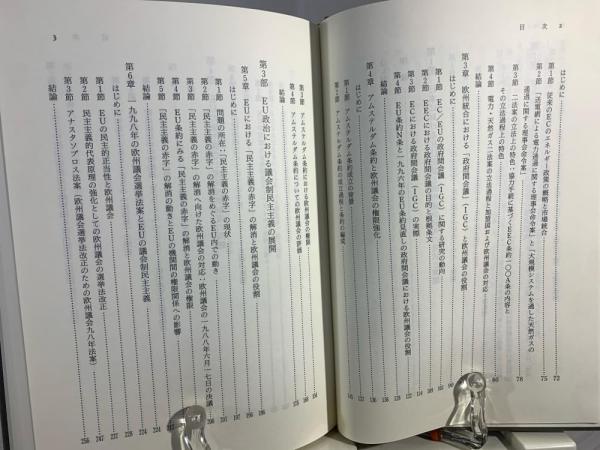 目次 2
はじめに 72
第1節 従来のECのエネルギー政策の概略と市場統合 75
第2節 「送電網による電力通過に関する理事会命令案」と「大規模システムを通した天然ガスの
通過に関する理事会命令案」 78
第3節 二法案の立法上の特色:協力手続に基づくEEC条約一〇〇A条の内容と
その立法過程上の特色 80
第4節 電力・天然ガス二法案の立法過程と加盟国および欧州議会の対応 86
結論
第3章 欧州統合における「政府間会議(IGC)」と欧州議会の役割
はじめに
第1節 EC/EUの政府間会議(IGC)に関する研究の動向
第2節 EECにおける政府間会議の目的と根拠条文
第3節 ECにおける政府間会議(IGC)の実際
第4節 EU条約N条と一九九六年のEU条約見直しの政府間会議における欧州議会の役割
結論
第4章 アムステルダム条約と欧州議会の権限強化
はじめに
第1節 アムステルダム条約の成立過程と条約の構成
第2節 アムステルダム条約成立の背景
第3節 アムステルダム条約における欧州議会の権限
第4節 アムステルダム条約についての欧州議会の評価
結論
第3部 EU政治における議会制民主主義の展開
第5章 EUにおける「民主主義の赤字」の解消と欧州議会の役割
はじめに
第1節 問題の所在:「民主主義の赤字」の現状
第2節 「民主主義の赤字」の解消をめぐるEU内での動き
第3節 「民主主義の赤字」の解消へ向けた欧州議会の対応:欧州議会の一九八八年六月一七日の決議
第4節 EU条約にみる「民主主義の赤字」の解消と欧州議会の権限
第5節 「民主主義の赤字」の解消の動きとEUの機関間の権限関係への影響
結論
第6章 一九九八年の欧州議会選挙法案とEUの議会制民主主義
はじめに
第1節 EUの民主的正当性と欧州議会
第2節 民主主義的代表原理の強化としての欧州議会の選挙法改正
第3節 アナスタソプロス法案(欧州議会選挙法改正のための欧州議会九八年法案)
結論 256
3